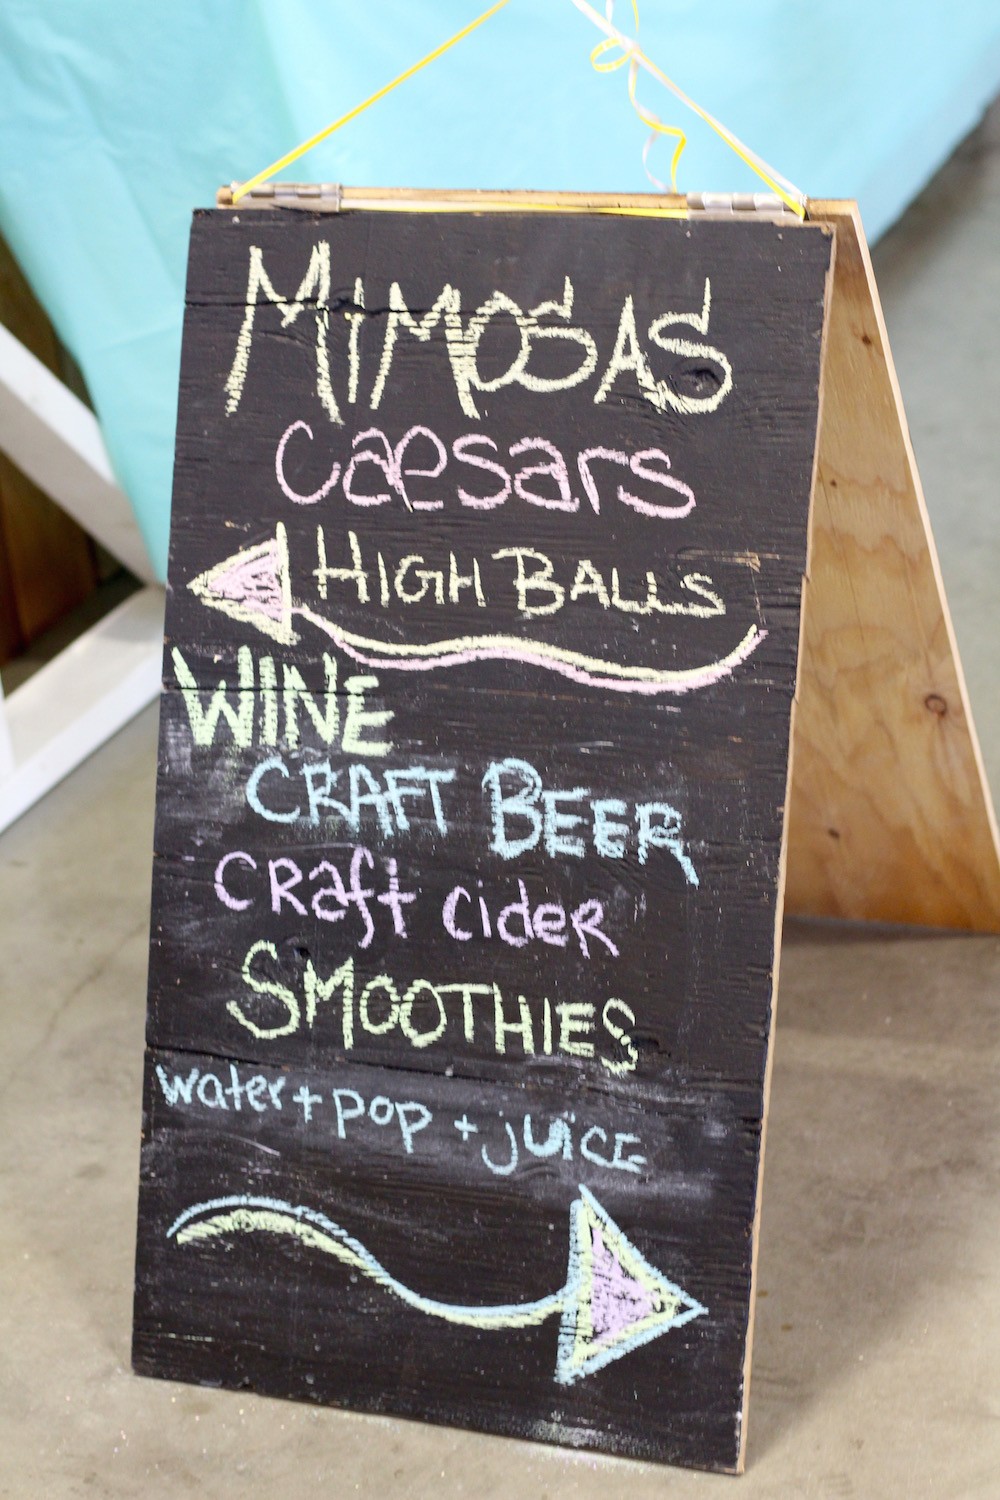 MIMOSAS
Caesars
HIGH BALLS
WINE
CRAFT BEER
craft cider
SMOOTHIES
water + pop + juice